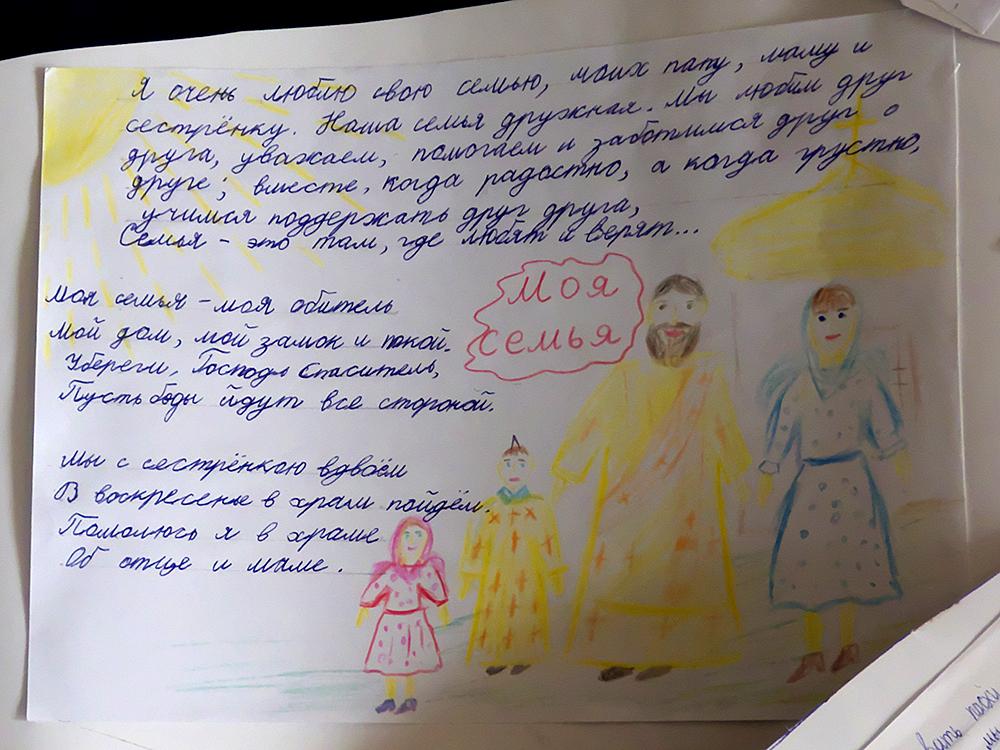 Я очень люблю свою семью, моих папу, маму и
сестрёнку. Наша семья дружная. Мы любим друг
друга, уважаем, помогаем и заботимся друг о
друге; вместе, когда радостно, а когда грустно,
учимся поддержать друг друга,
Семья - это там, где любят и верят...
Моя
семья
Моя семья - моя обитель
Мой дом, мой замок и покой.
Убереги, Господь Спаситель,
Пусть беды йдут все стороной.
Мы с сестрёнкою вдвоём
В воскресенье в храм пойдём.
Помолюсь я в храме
Об отце и маме.